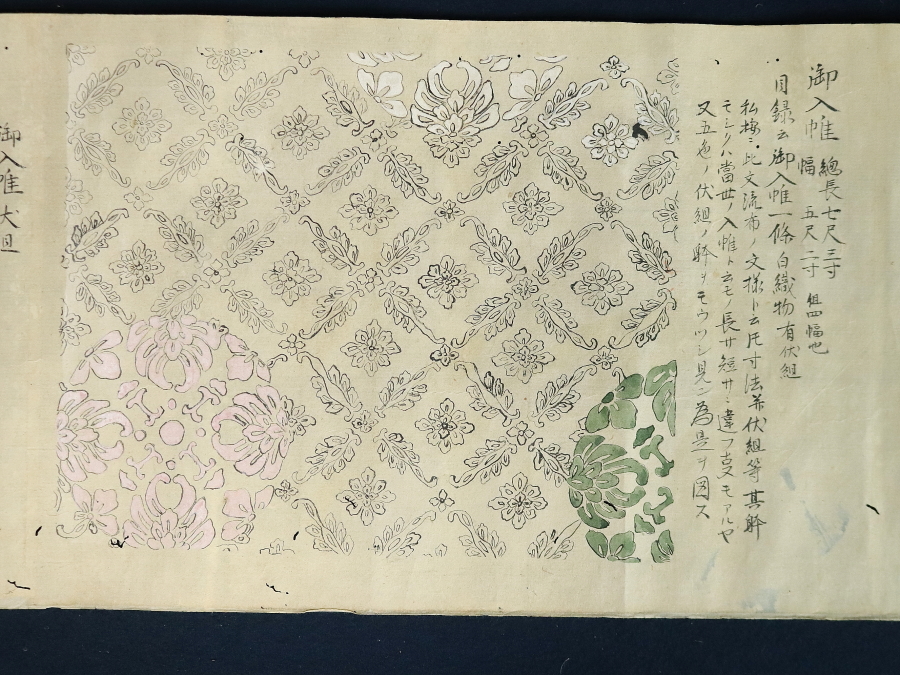 御入帷 總長七尺三寸
幅 五尺二寸 但四幅也
目録云御入帷一條白織物有伏組
私按ニ此文流布ノ文様ト云尺寸法并伏組等其躰
モシクハ當世ノ入帷ト云モノ長サ短サニ違フ支モアルヤ
又五色ノ伏組ノ躰ヲモウツシ見ン為是ヲ図ス
御入帷伏組